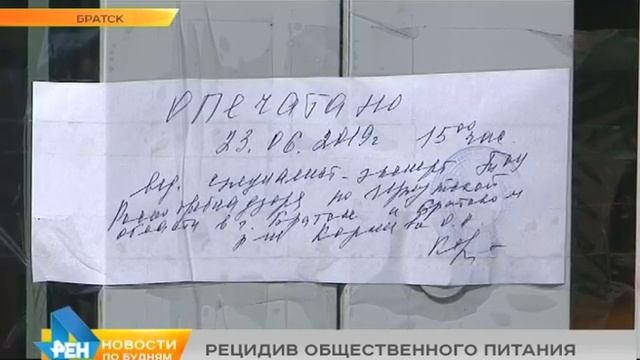 БРАТСК
опечатано
23.06.2019г 15⁰⁰ час.
вед. специалист-эксперт ТОУ
Роспотребнадзора по Иркутской
области в г. Братске и Братском
р-не
РЕН
НОВОСТИ
ПО БУДНЯМ
РЕЦИДИВ ОБЩЕСТВЕННОГО ПИТАНИЯ